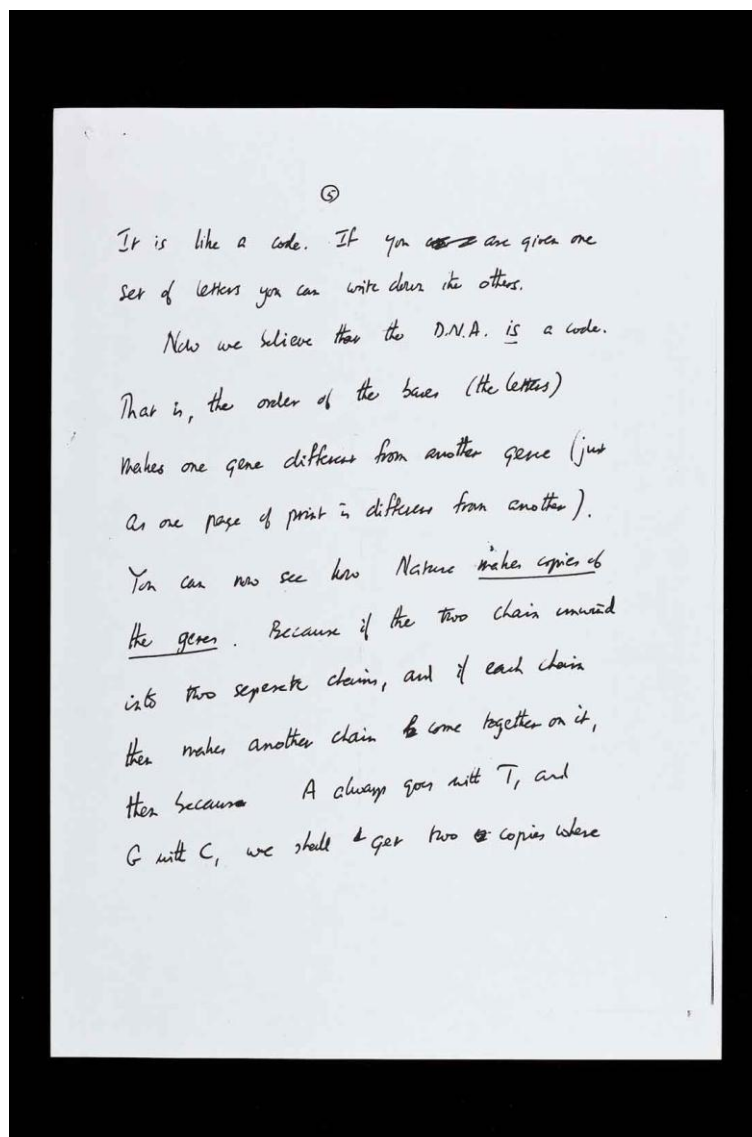 ⑤
It is like a code. If you are given one
set of letters you can write down the others.
Now we believe that the D.N.A. is a code.
That is, the order of the bases (the letters)
makes one gene different from another gene (just
as one page of print is different from another).
You can now see how Nature makes copies of
the genes. Because if the two chains unwind
into two seperate chains, and if each chain
then makes another chain come together on it,
then because A always goes with T, and
G with C, we shall get two copies where